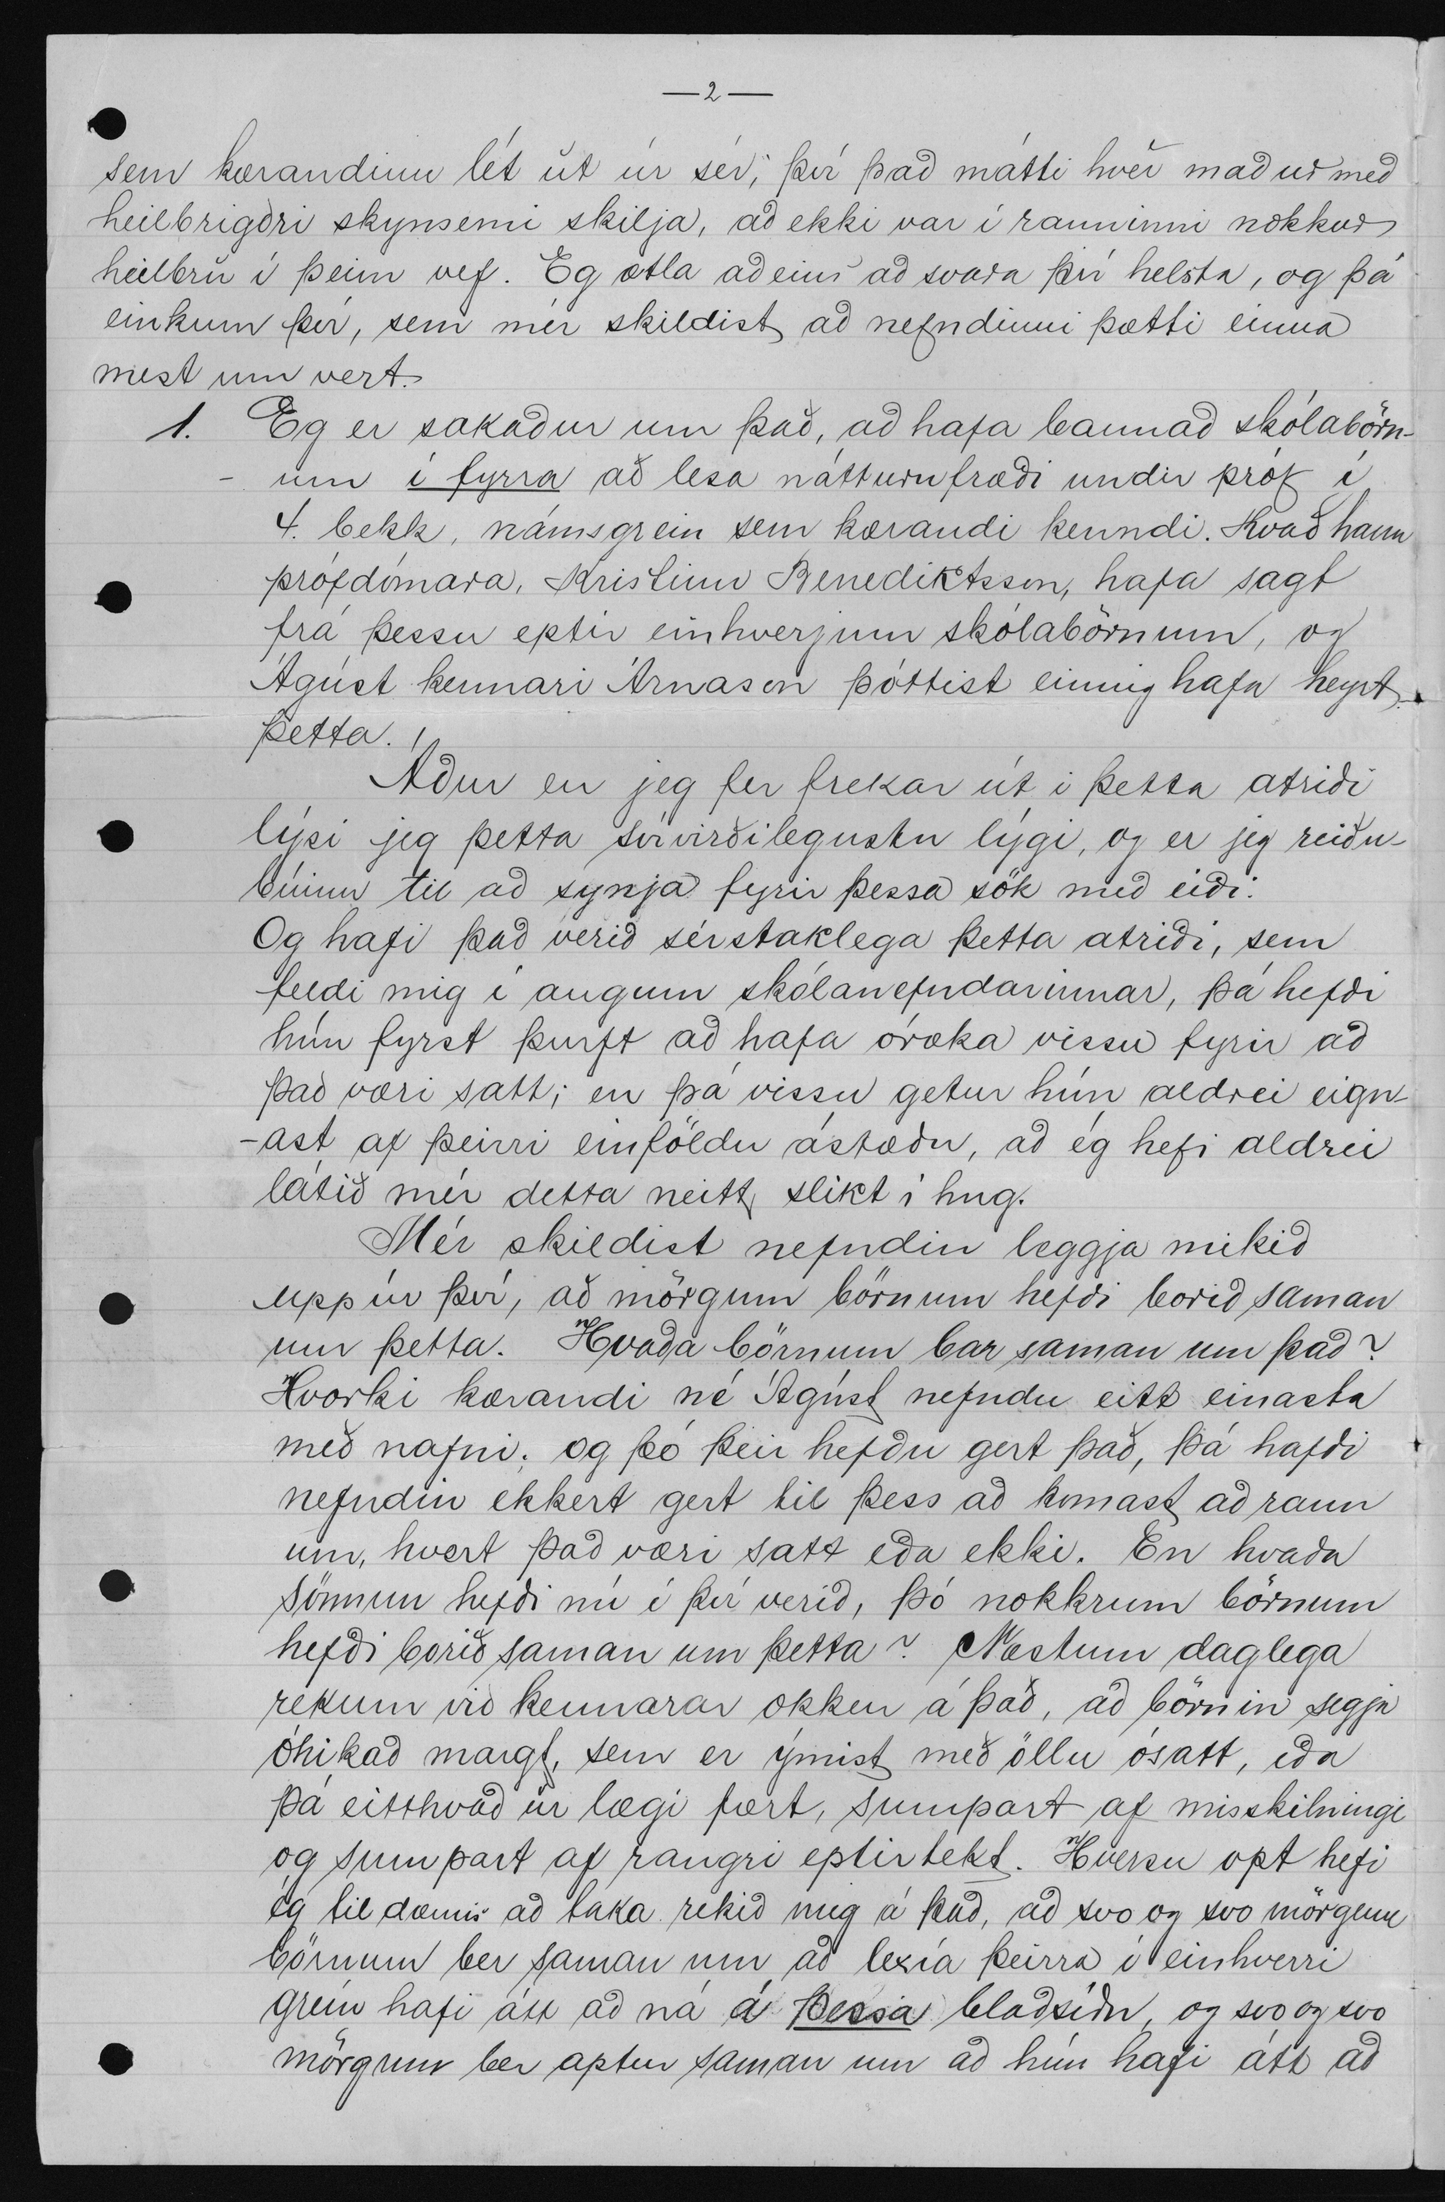 — 2 —
sem kærandinn lét út úr sér; því það mátti hver maður með
heilbrigðri skynsemi skilja, að ekki var í rauninni nokkur
heilbrú í þeim vef. Eg ætla aðeins að svara því helsta, og þá
einkum því, sem mér skildist að nefndinni þætti einna
mest um vert.
1. Eg er sakaður um það, að hafa bannað skólabörn-
- um í fyrra að lesa náttúrufræði undir próf í
4. bekk, námsgrein sem kærandi kenndi. Kvað hann
prófdómara, Kristinn Benediktsson, hafa sagt
frá þessu eptir einhverjum skólabörnum, og
Ágúst kennari Árnason þóttist einnig hafa heyrt
þetta.
Áður en jeg fer frekar út í þetta atriði
lýsi jeg þetta svívirðilegustu lýgi, og er jeg reiðu-
búinn til að synja fyrir þessa sök með eiði.
Og hafi það verið sérstaklega þetta atriði, sem
feldi mig í augum skólanefndarinnar, þá hefði
hún fyrst þurft að hafa óræka vissu fyrir að
það væri satt; en þá vissu getur hún aldrei eign-
-ast af þeirri einföldu ástæðu, að ég hefi aldrei
látið mér detta neitt slíkt í hug.
Mér skildist nefndin leggja mikið
upp úr því, að mörgum börnum hefði borið saman
um þetta. Hvaða börnum bar saman um það?
Hvorki kærandi né Ágúst nefndu eitt einasta
með nafni; og þó þeir hefðu gert það, þá hafði
nefndin ekkert gert til þess að komast að raun
um, hvort það væri satt eða ekki. En hvaða
sönnun hefði nú í því verið, þó nokkrum börnum
hefði borið saman um þetta? Næstum daglega
rekum við kennarar okkur á það, að börnin segja
óhikað margt, sem er ýmist með öllu ósatt, eða
þá eitthvað úr lægi fært, sumpart af misskilningi
og sumpart af rangri eptirtekt. Hversu opt hefi
ég til dæmis að taka rekið mig á það, að svo og svo mörgum
börnum ber saman um að lexía þeirra í einhverri
grein hafi átt að ná á þessa blaðsíðu, og svo og svo
mörgum ber aptur saman um að hún hafi átt að